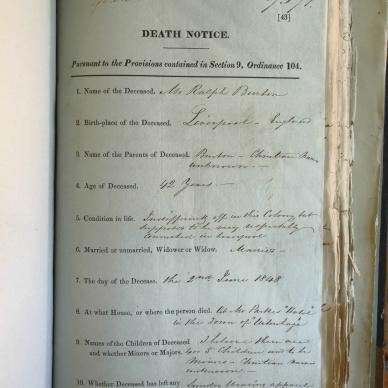 [43]
DEATH NOTICE.
Pursuant to the Provisions contained in Section 9, Ordinance 104.
1. Name of the Deceased. Mr Ralph Burton
2. Birth-place of the Deceased. Liverpool – England
3. Name of the Parents of Deceased. Burton – Christian Names
unknown –
4. Age of Deceased. 42 Years –
5. Condition in life. Indifferently off in this Colony but
supposed to be very respectably
connected in Liverpool
6. Married or unmarried, Widower or Widow. Married
7. The day of the Decease. the 2nd June 1848
8. At what House, or where the person died. At Mr "Hotel"
in the Town of "Uitenhage"
9. Names of the Children of Deceased I believe there are
and whether Minors or Majors. 4 or 5 Children and to be
Minors – Christian names
unknown –
10. Whether Deceased has left any Sundry Wearing apparel